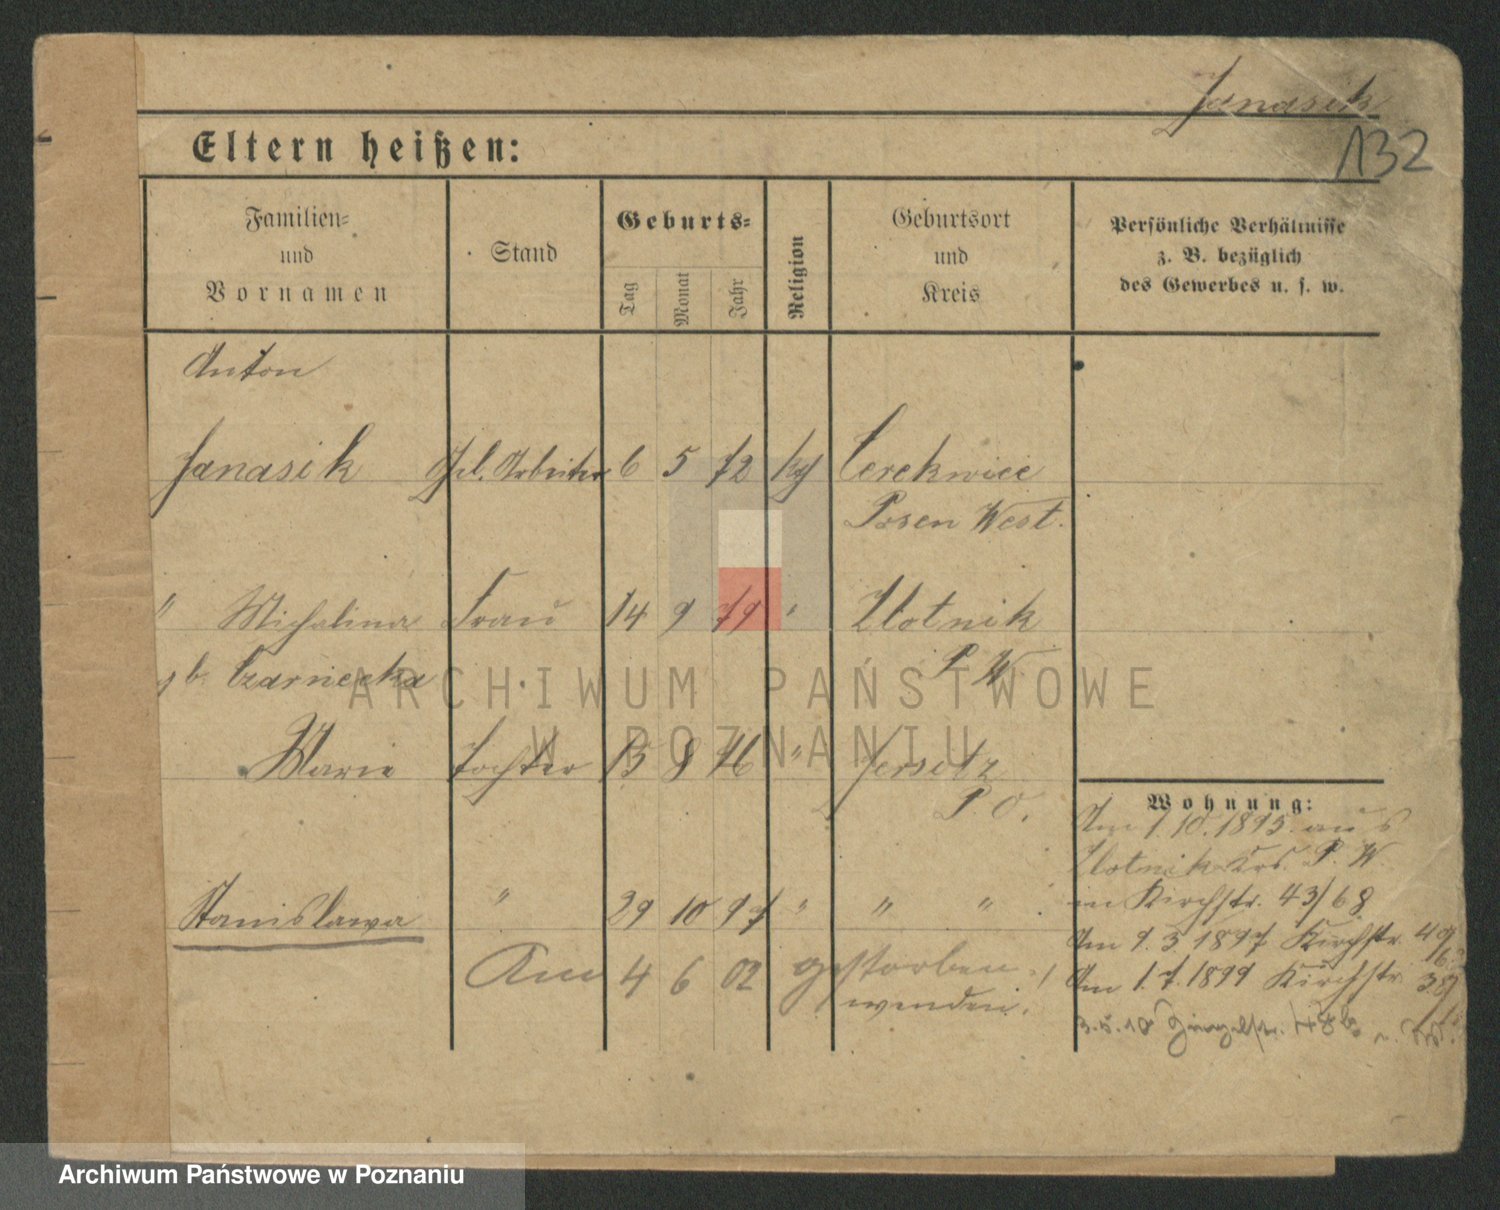 Janasik
132
Eltern heißen:
Familien-
und
Vornamen
Stand
Geburts-
Tag
Monat
Jahr
Religion
Geburtsort
und
Kreis
Persönliche Verhältnisse
z. B. bezüglich
des Gewerbes u. s. w.
Anton
Janasik Arbeiter 6 5 72 Cerekwice
Posen West.
" Michalina Frau 14 9 79 " Zlotnik
P. W.
gb. Czarnecka
Marie Tochter 15 8 96 " Jersitz
P. O.
Stanislawa " 29 10 97 " " "
Am 4 6 02 gestorben
Wohnung:
Am 1.10.1895. aus
Zlotnik Krs. P. W.
in Kirchstr. 43/68
Am 9.3.1897 Kirchstr. 49
Am 1.7.1899 Kirchstr. 38
3.5.10
ARCHIWUM PAŃSTWOWE
W POZNANIU
Archiwum Państwowe w Poznaniu